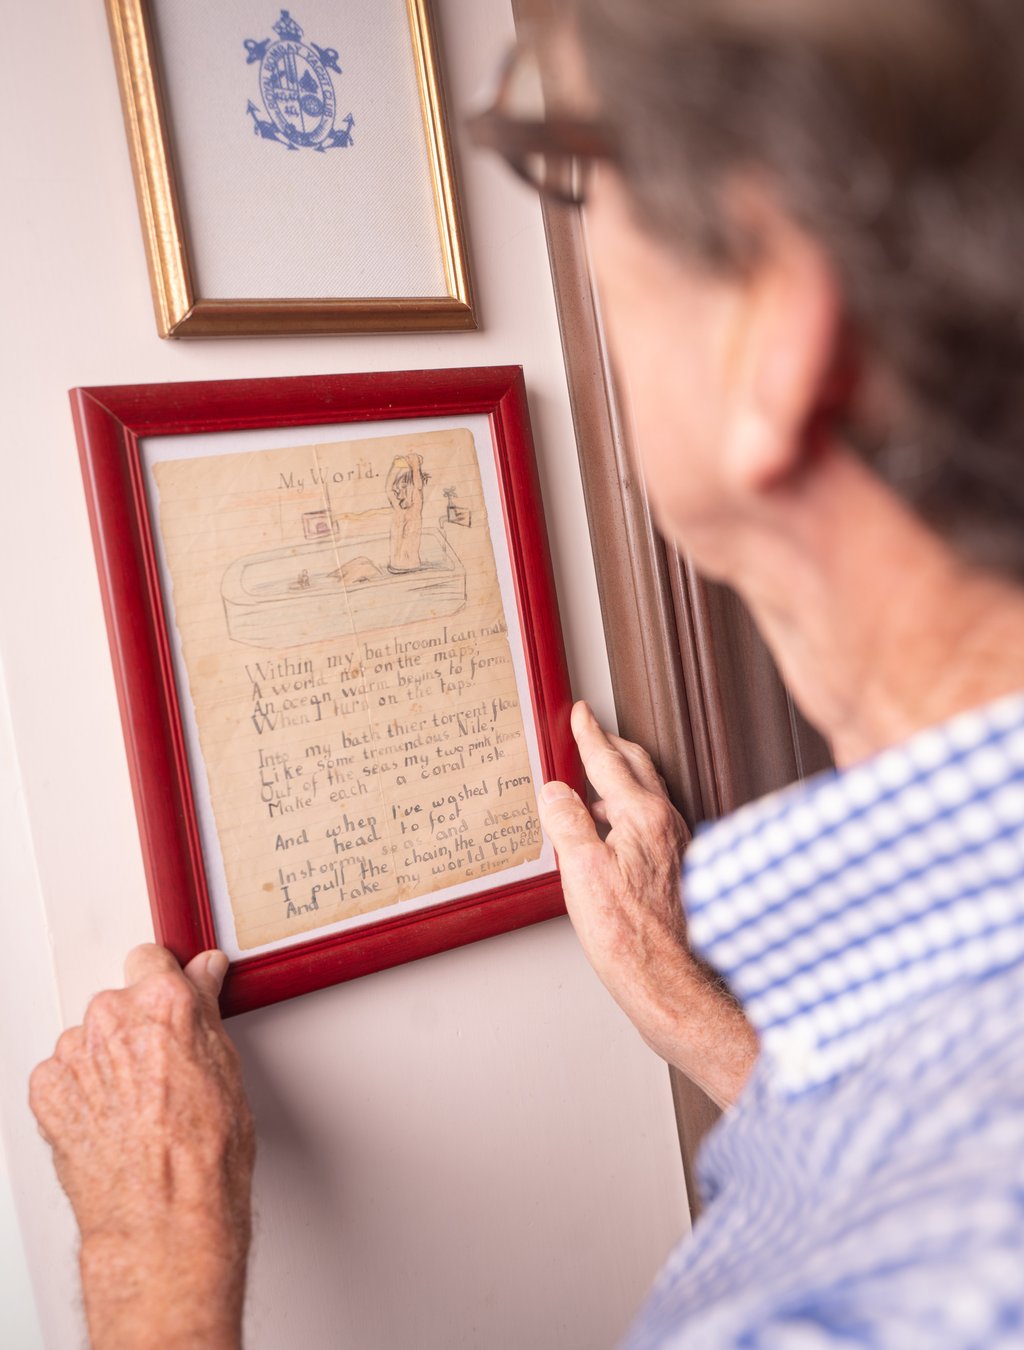 ROYAL BOMBAY YACHT CLUB
My World.
Within my bathroom I can make
A world not on the maps;
An ocean warm begins to form
When I turn on the taps.
Into my bath thier torrent flow
Like some tremendous Nile;
Out of the seas my two pink knees
Make each a coral isle
And when I've washed from
head to foot
In stormy seas and dread
I pull the chain, the ocean dr
And take my world to bed